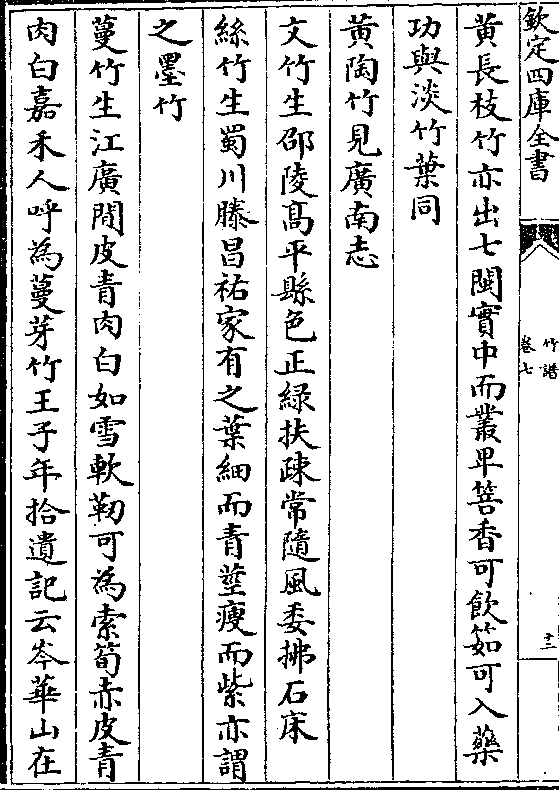 欽定四庫全書
竹譜
卷七
十三
黄長枝竹亦出七閩實中而叢卑䈞香可飲筎可入藥
功與淡竹葉同
黄陶竹見廣南志
文竹生邵陵髙平縣色正緑扶疎常隨風委拂石床
絲竹生蜀川滕昌祐家有之葉細而青莖瘦而紫亦謂
之墨竹
蔓竹生江廣間皮青肉白如雪軟靭可為索筍赤皮青
肉白嘉禾人呼為蔓芽竹王子年拾遺記云岑華山在